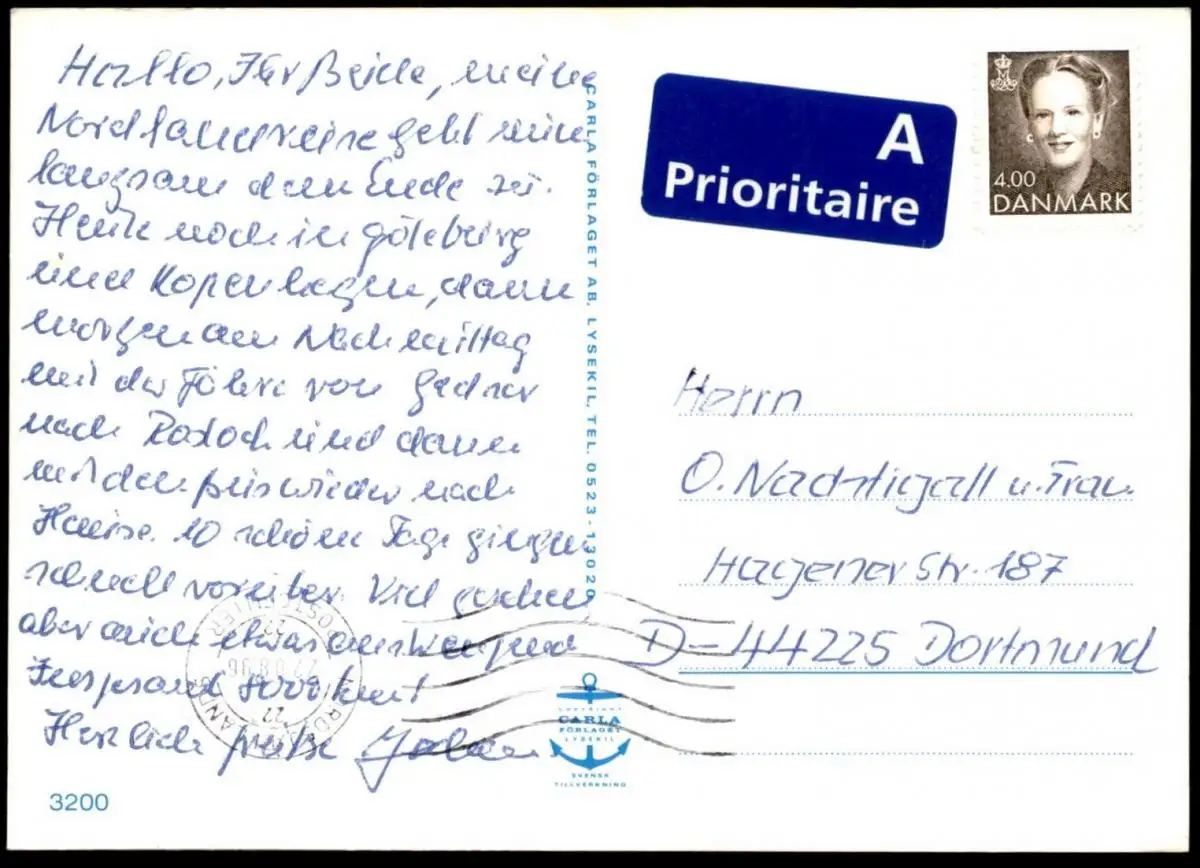 Hallo, Ihr Beide, meine
Nordlandreise geht nun
langsam dem Ende zu.
Heute noch in Göteburg
und Kopenhagen, dann
morgen am Nachmittag
mit der Fähre von Gedser
nach Rostock und dann
mit dem Bus wieder nach
Hause. 10 schöne Tage gingen
schnell vorüber. Viel gesehen,
aber auch etwas anstrengend
Insgesamt
Herzliche Grüße
3200
CARLA FÖRLAGET AB, LYSEKIL, TEL. 0523-13020
COPYRIGHT
CARLA
FÖRLAGET
LYSEKIL
SVENSK
TILLVERKNING
A
Prioritaire
4.00
DANMARK
Herrn
O. Nachtigall u. Frau
Hagener Str. 187
D-44225 Dortmund